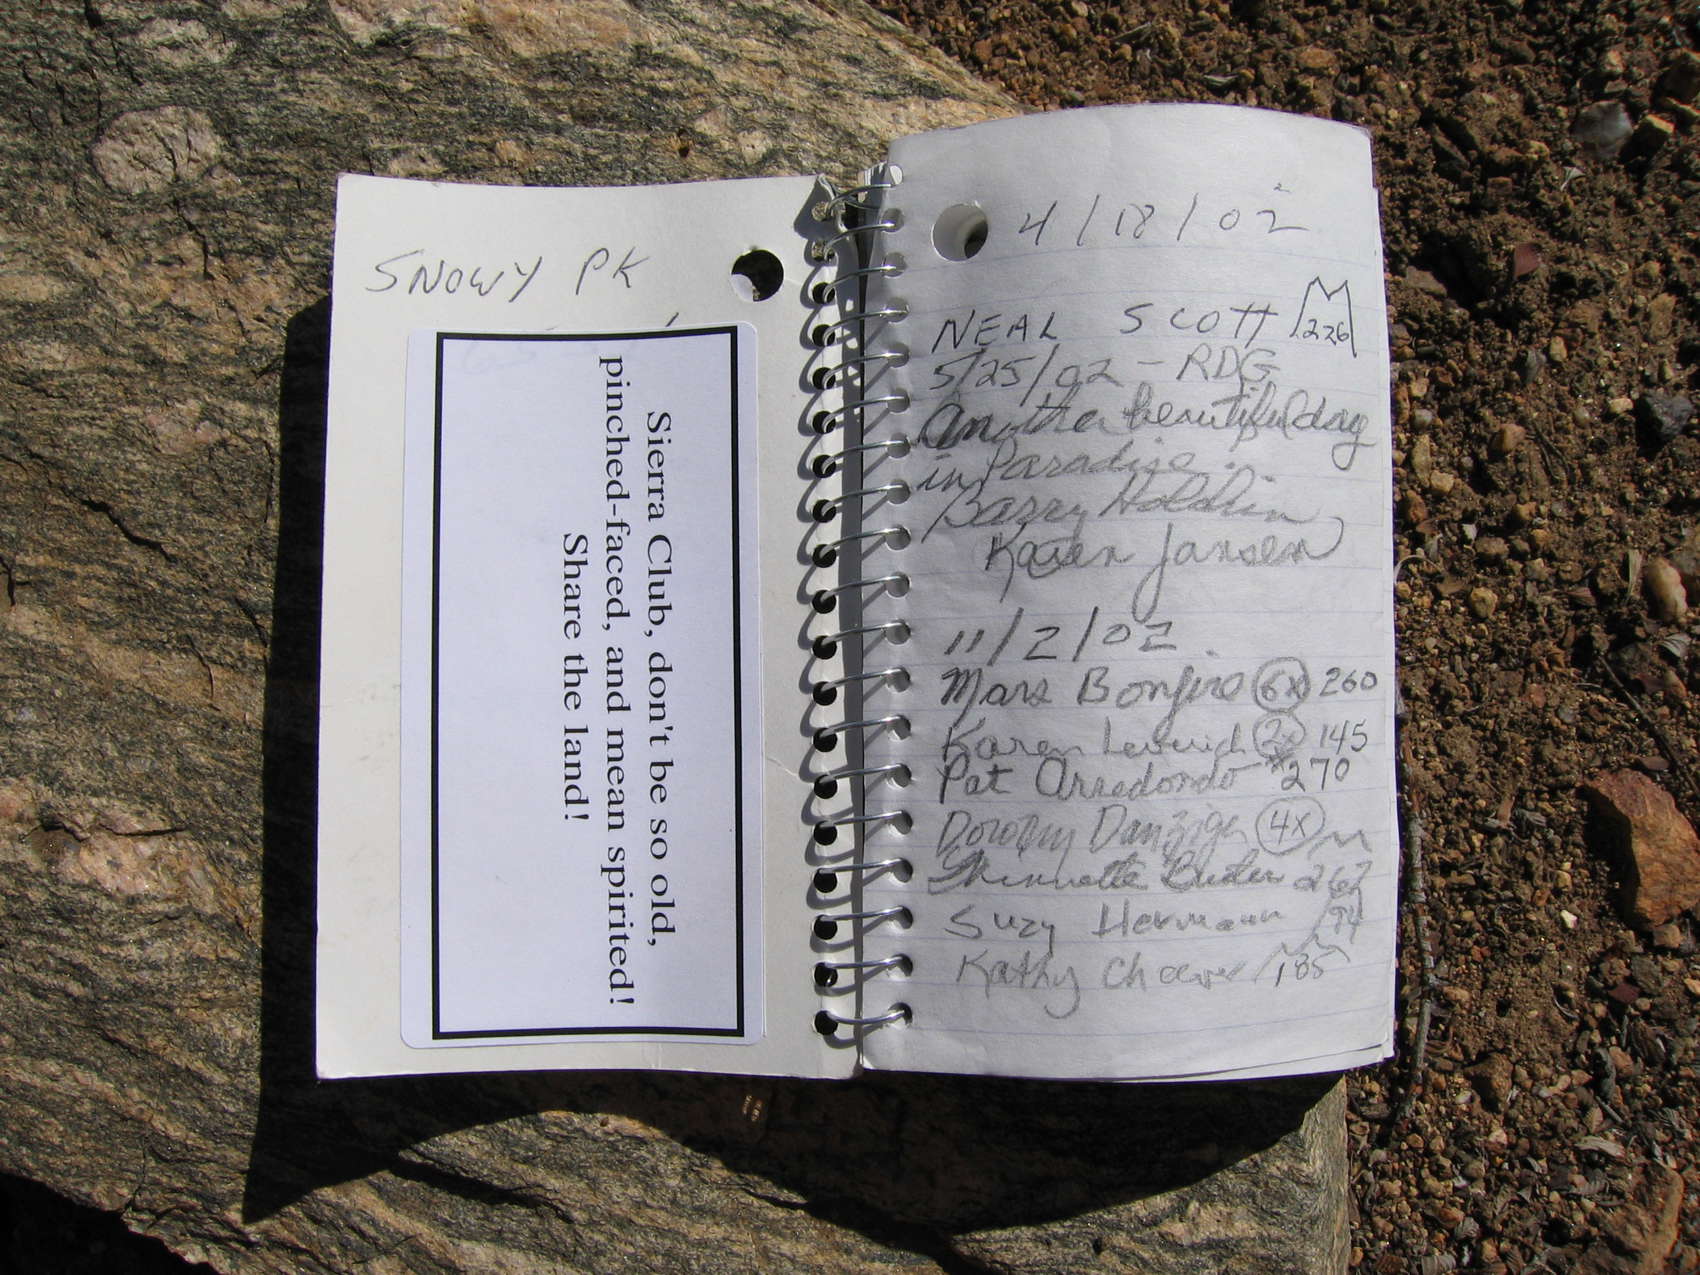 SNOWY PK
Sierra Club, don't be so old,
pinched-faced, and mean spirited!
Share the land!
4/18/02
NEAL SCOTT 226
5/25/02 - RDG
Another beautiful day
in Paradise.
Barry Holchin
Karen Jansen
11/2/02
Mars Bonfire 6x 260
Karen Leverich 2x 145
Pat Arredondo 270
Dorothy Danziger 4x
262
Suzy Hermann 194
Kathy Cheever 185